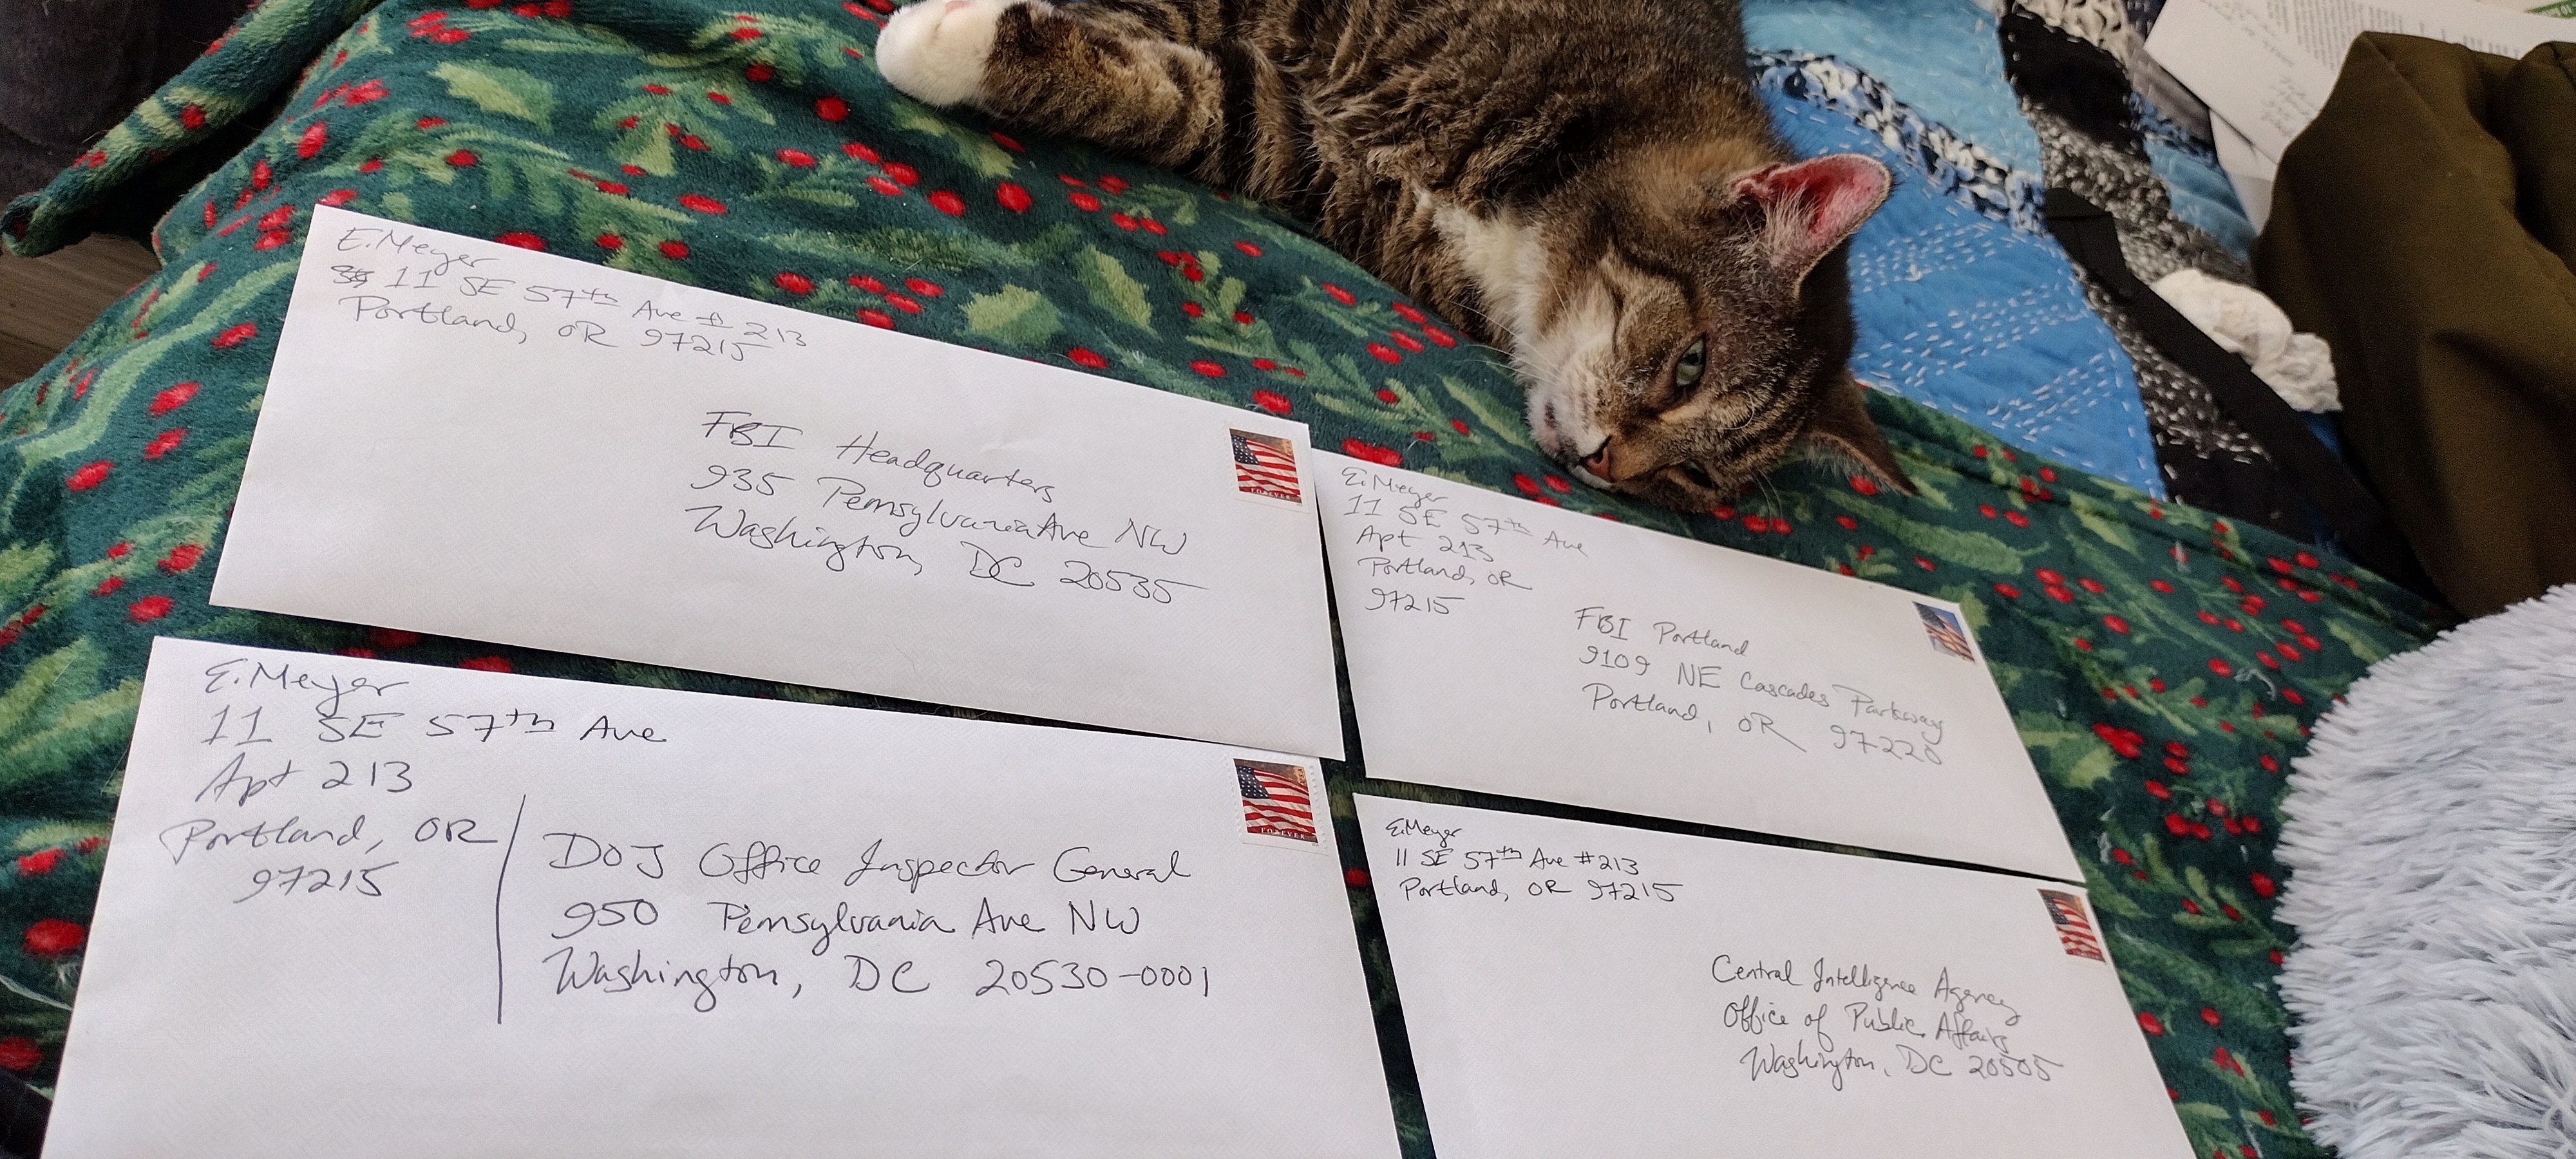 E. Meyer
11 SE 57th Ave # 213
Portland, OR 97215
FBI Headquarters
935 Pennsylvania Ave NW
Washington, DC 20535
FOREVER
E. Meyer
11 SE 57th Ave
Apt 213
Portland, OR
97215
FBI Portland
9109 NE Cascades Parkway
Portland, OR 97220
E. Meyer
11 SE 57th Ave
Apt 213
Portland, OR
97215
DOJ Office Inspector General
950 Pennsylvania Ave NW
Washington, DC 20530-0001
FOREVER
E. Meyer
11 SE 57th Ave #213
Portland, OR 97215
Central Intelligence Agency
Office of Public Affairs
Washington, DC 20505